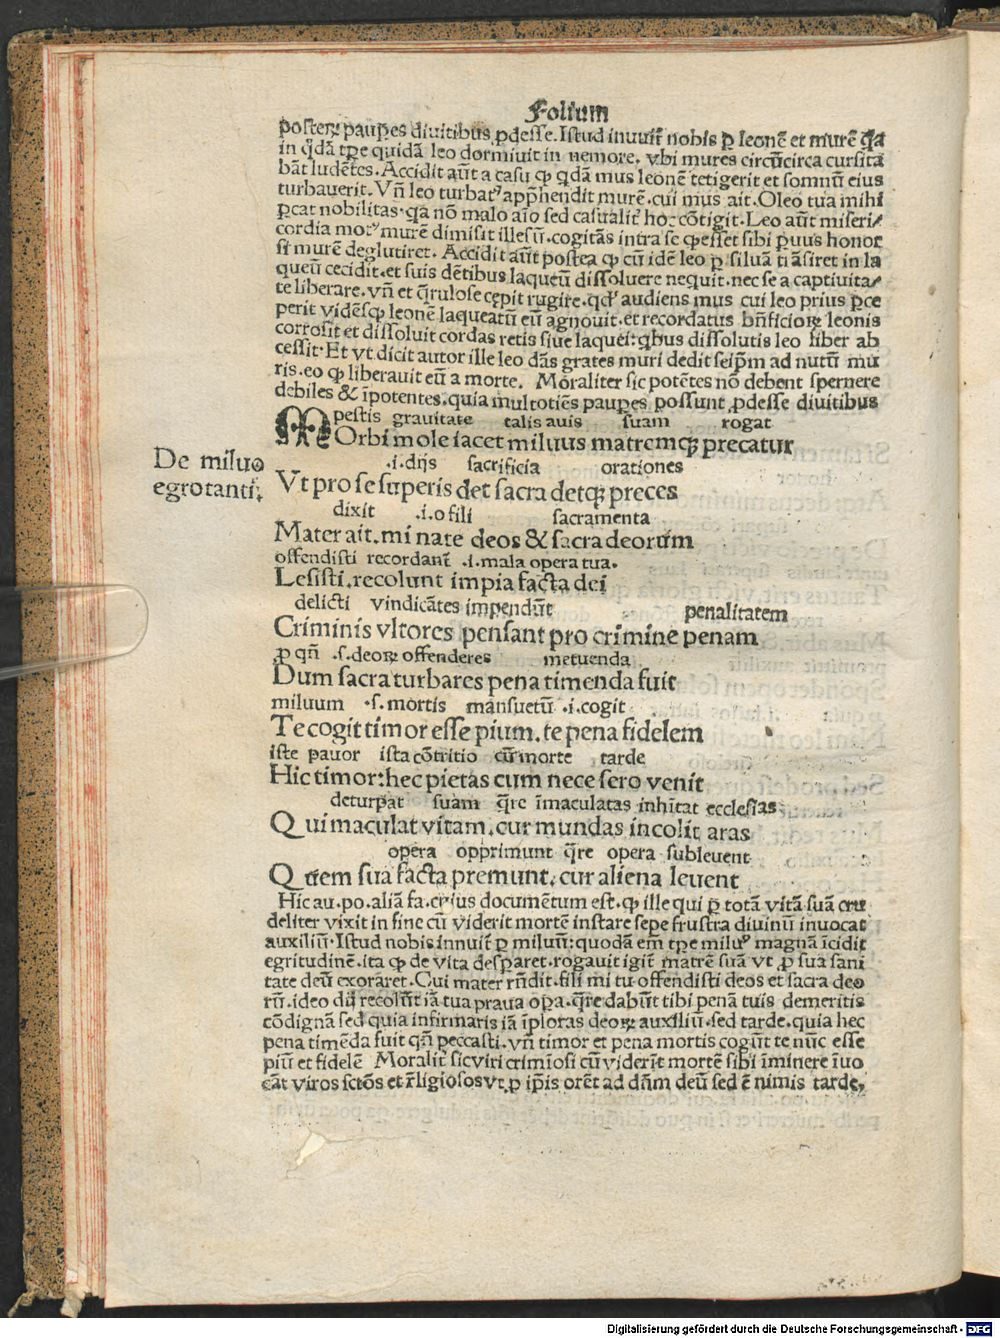 Folium
posteꝝ paup̲es diuitibus ꝓdesse. Istud inuuit̃ nobis ꝑ leonẽ et murẽ q̃a
in q̃dã tp̲e quidã leo dormiuit in nemore. vbi mures circũcirca cursita
bãt ludẽtes. Accidit aũt a casu ꝙ q̃dã mus leonẽ tetigerit et somnũ eius
turbauerit. Vñ leo turbatꝰ app̃hendit murẽ. cui mus ait. O leo tua mihi
ꝑcat nobilitas. q̃a nõ malo aĩo sed casualit̃ hoc cõtigit. Leo aũt miseri/
cordia motꝰ murẽ dimisit illesũ. cogitãs intra se ꝙ esset sibi ꝑuus honor
si murẽ deglutiret. Accidit aũt postea ꝙ cũ idẽ leo ꝑ siluã trãsiret in la
queũ cecidit. et suis dẽtibus laqueũ dissoluere nequit. nec se a captiuita/
te liberare. vñ et q̃rulose cepit rugire. qd̓ audiens mus cui leo prius ꝑce
perit vidẽsqꝫ leonẽ laqueatũ eũ agnouit. et recordatus bñficioꝝ leonis
corrosit et dissoluit cordas retis siue laquei: qͥbus dissolutis leo liber ab
cessit. Et vt dicit autor ille leo dãs grates muri dedit seip̃m ad nutũ mu
ris. eo ꝙ liberauit eũ a morte. Moraliter sic potẽtes nõ debent spernere
debiles & ĩpotentes. quia multotiẽs paup̲es possunt ꝓdesse diuitibus
pestis grauitate talis auis suam rogat
MOrbi mole iacet miluus matremqꝫ precatur
De miluo
egrotanti.
.i. dijs sacrificia orationes
Vt pro se superis det sacra detqꝫ preces
dixit .i. o fili sacramenta
Mater ait. mi nate deos & sacra deorum
offendisti recordant̃ .i. mala opera tua.
Lesisti. recolunt impia facta dei
delicti vindicãtes impendũt penalitatem
Criminis vltores pensant pro crimine penam
ꝓ qñ .s. deoꝝ offenderes metuenda
Dum sacra turbares pena timenda fuit
miluum .s. mortis mansuetũ .i. cogit
Te cogit timor esse pium. te pena fidelem
iste pauor ista cõtritio cũ morte tarde
Hic timor: hec pietas cum nece sero venit
deturpat suam q̃re ĩmaculatas inhĩtat ecclesias
Qui maculat vitam. cur mundas incolit aras
opera opprimunt q̃re opera subleuent
Quem sua facta premunt. cur aliena leuent
Hic au. po. aliã fa. cuius documẽtum est. ꝙ ille qui ꝑ totã vitã suã cru
deliter vixit in fine cũ viderit mortẽ instare sepe frustra diuinũ inuocat
auxiliũ. Istud nobis innuit̃ ꝑ miluũ: quodã em̃ tp̲e miluꝰ magnã ĩcidit
egritudinẽ. ita ꝙ de vita desp̲aret. rogauit igit̃ matrẽ suã vt ꝓ sua sani
tate deũ exoraret. Cui mater rñdit. fili mi tu offendisti deos et sacra deo
rũ. ideo dij recolũt iã tua praua op̲a. q̃re dabũt tibi penã tuis demeritis
cõdignã sed quia infirmaris iã ĩploras deoꝝ auxiliũ. sed tarde. quia hec
pena timẽda fuit qñ peccasti. vñ timor et pena mortis cogũt te nũc esse
piũ et fidelẽ Moralit̃ sic viri crimĩosi cũ viderĩt mortẽ sibi ĩminere ĩuo
cãt viros sctõs et r̃ligiosos vt ꝓ ip̃is orẽt ad dñm deũ sed ẽ nimis tarde,
Digitalisierung gefördert durch die Deutsche Forschungsgemeinschaft - DFG